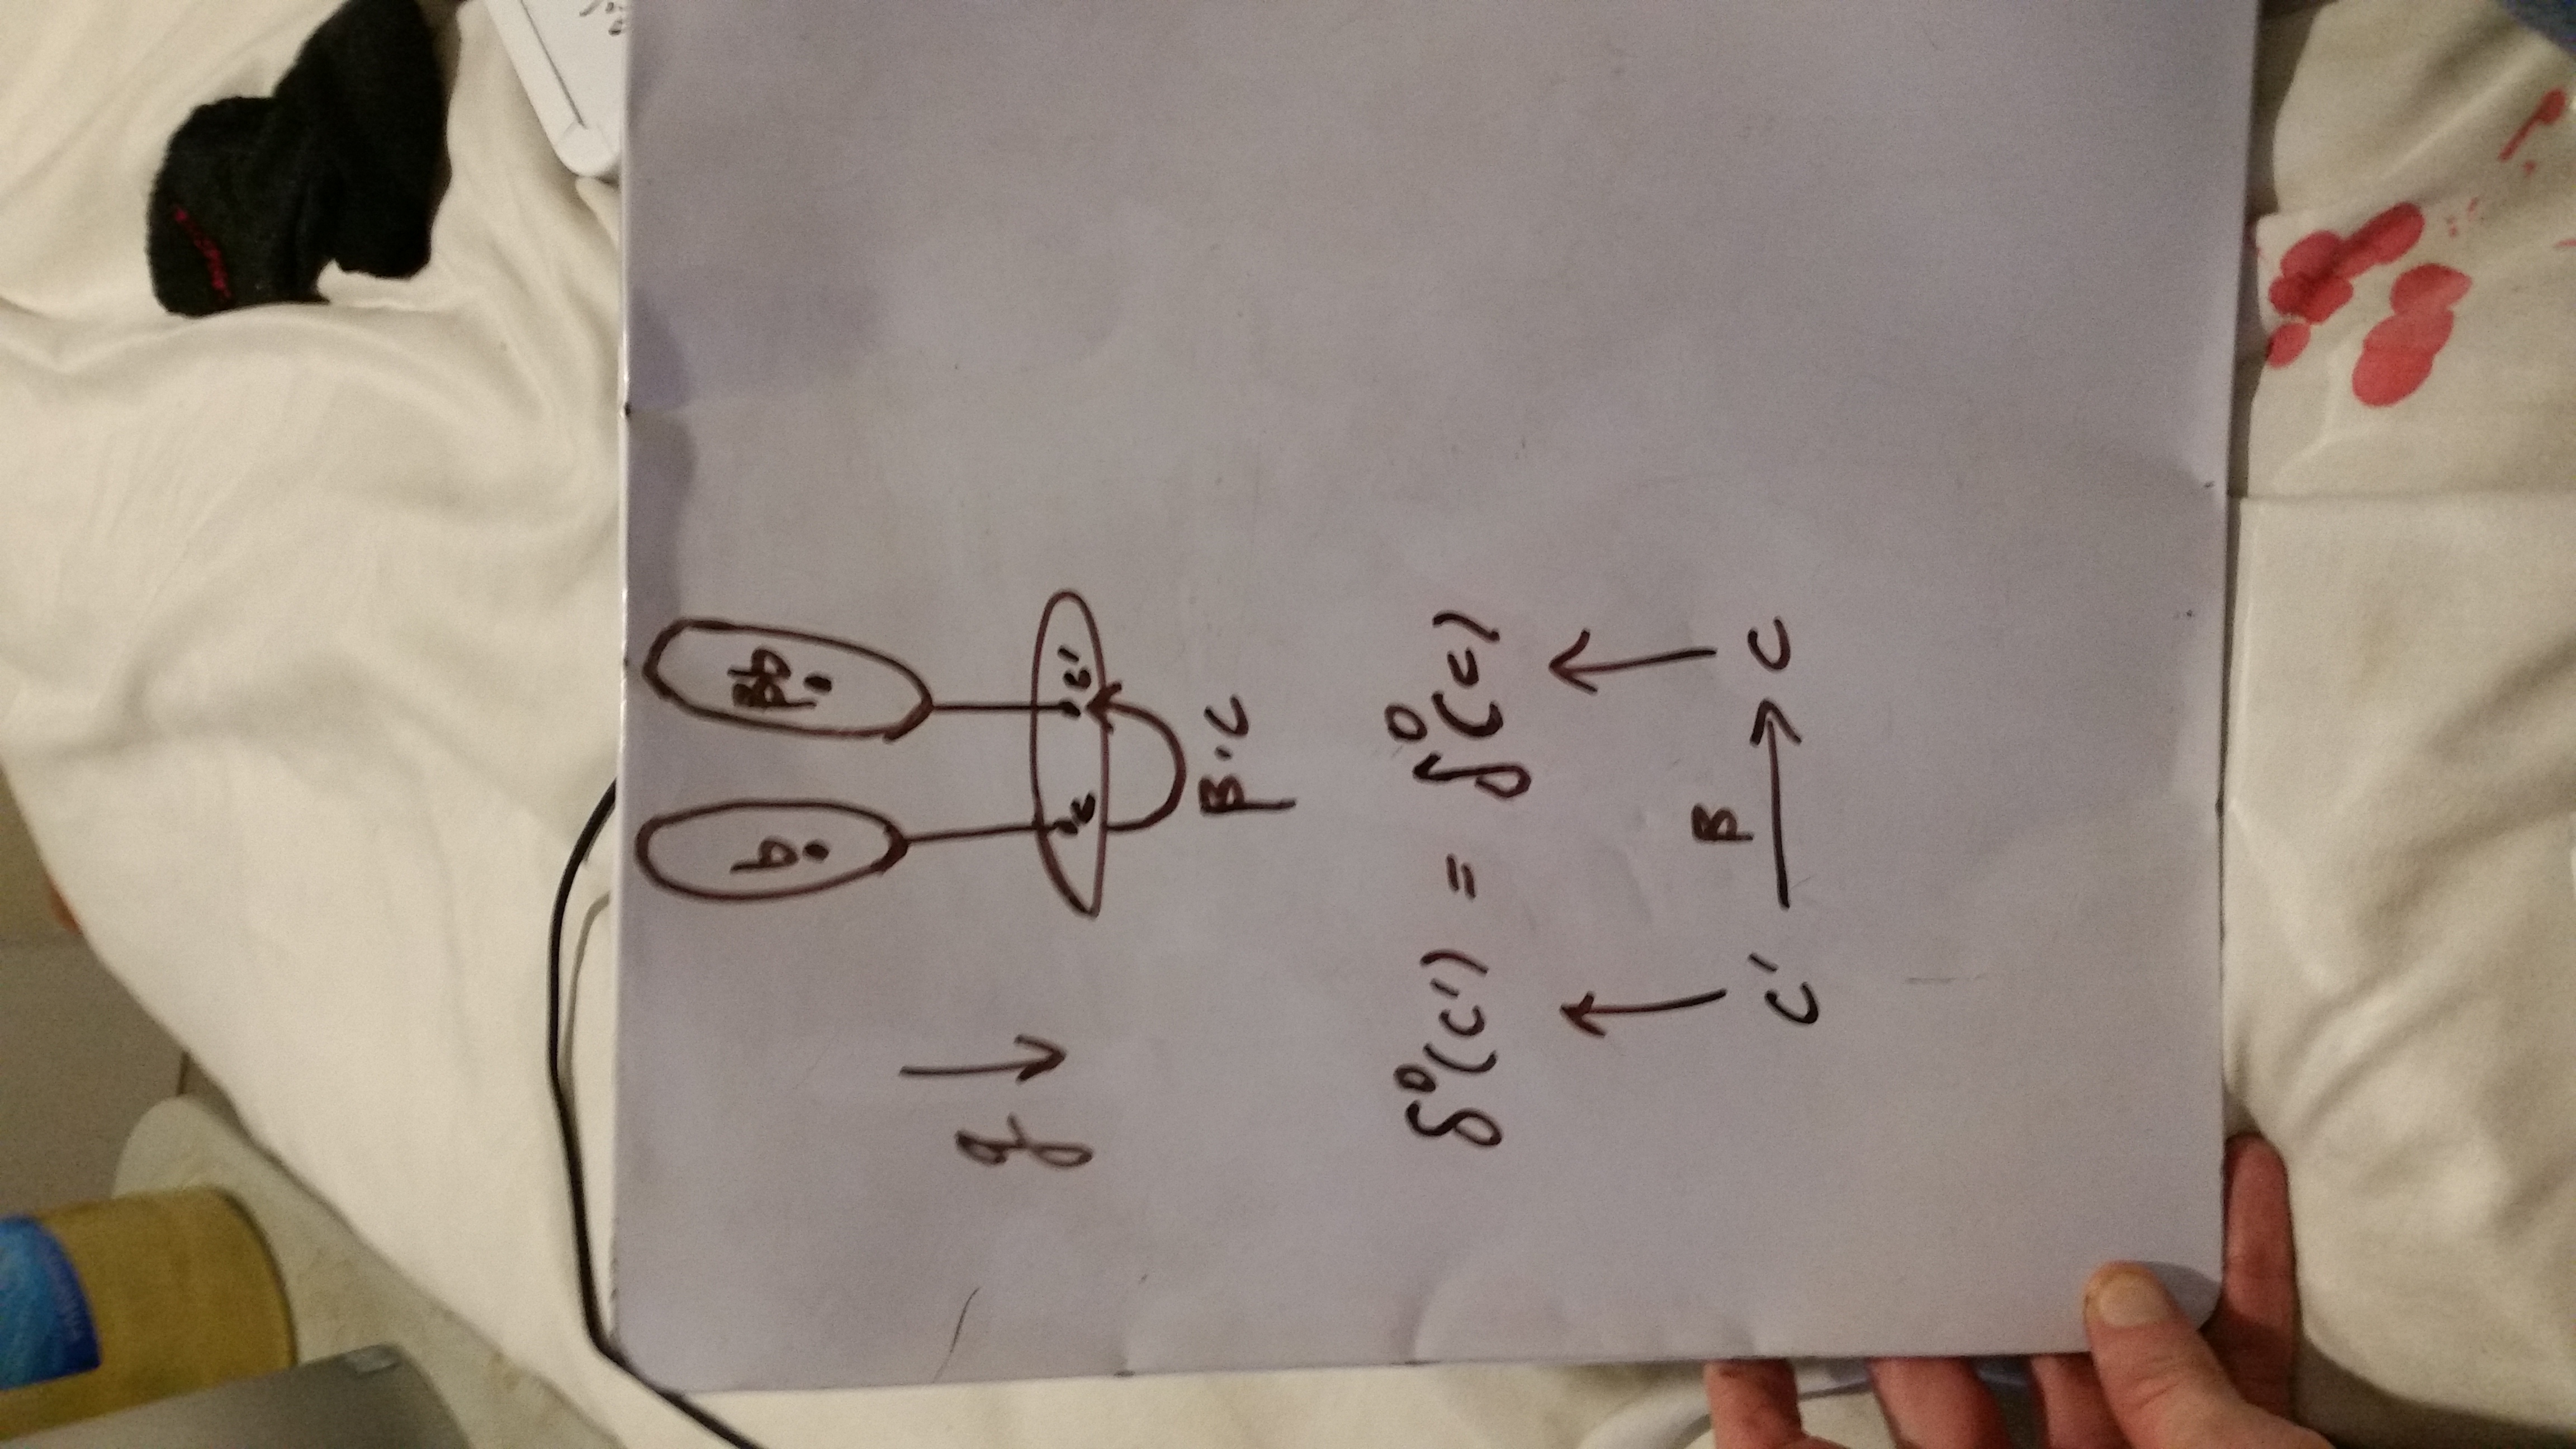 b βb
g ↓
c c'
β·c
δ⁰(c') = δ⁰(c)
↑ ↑
β
c' → c